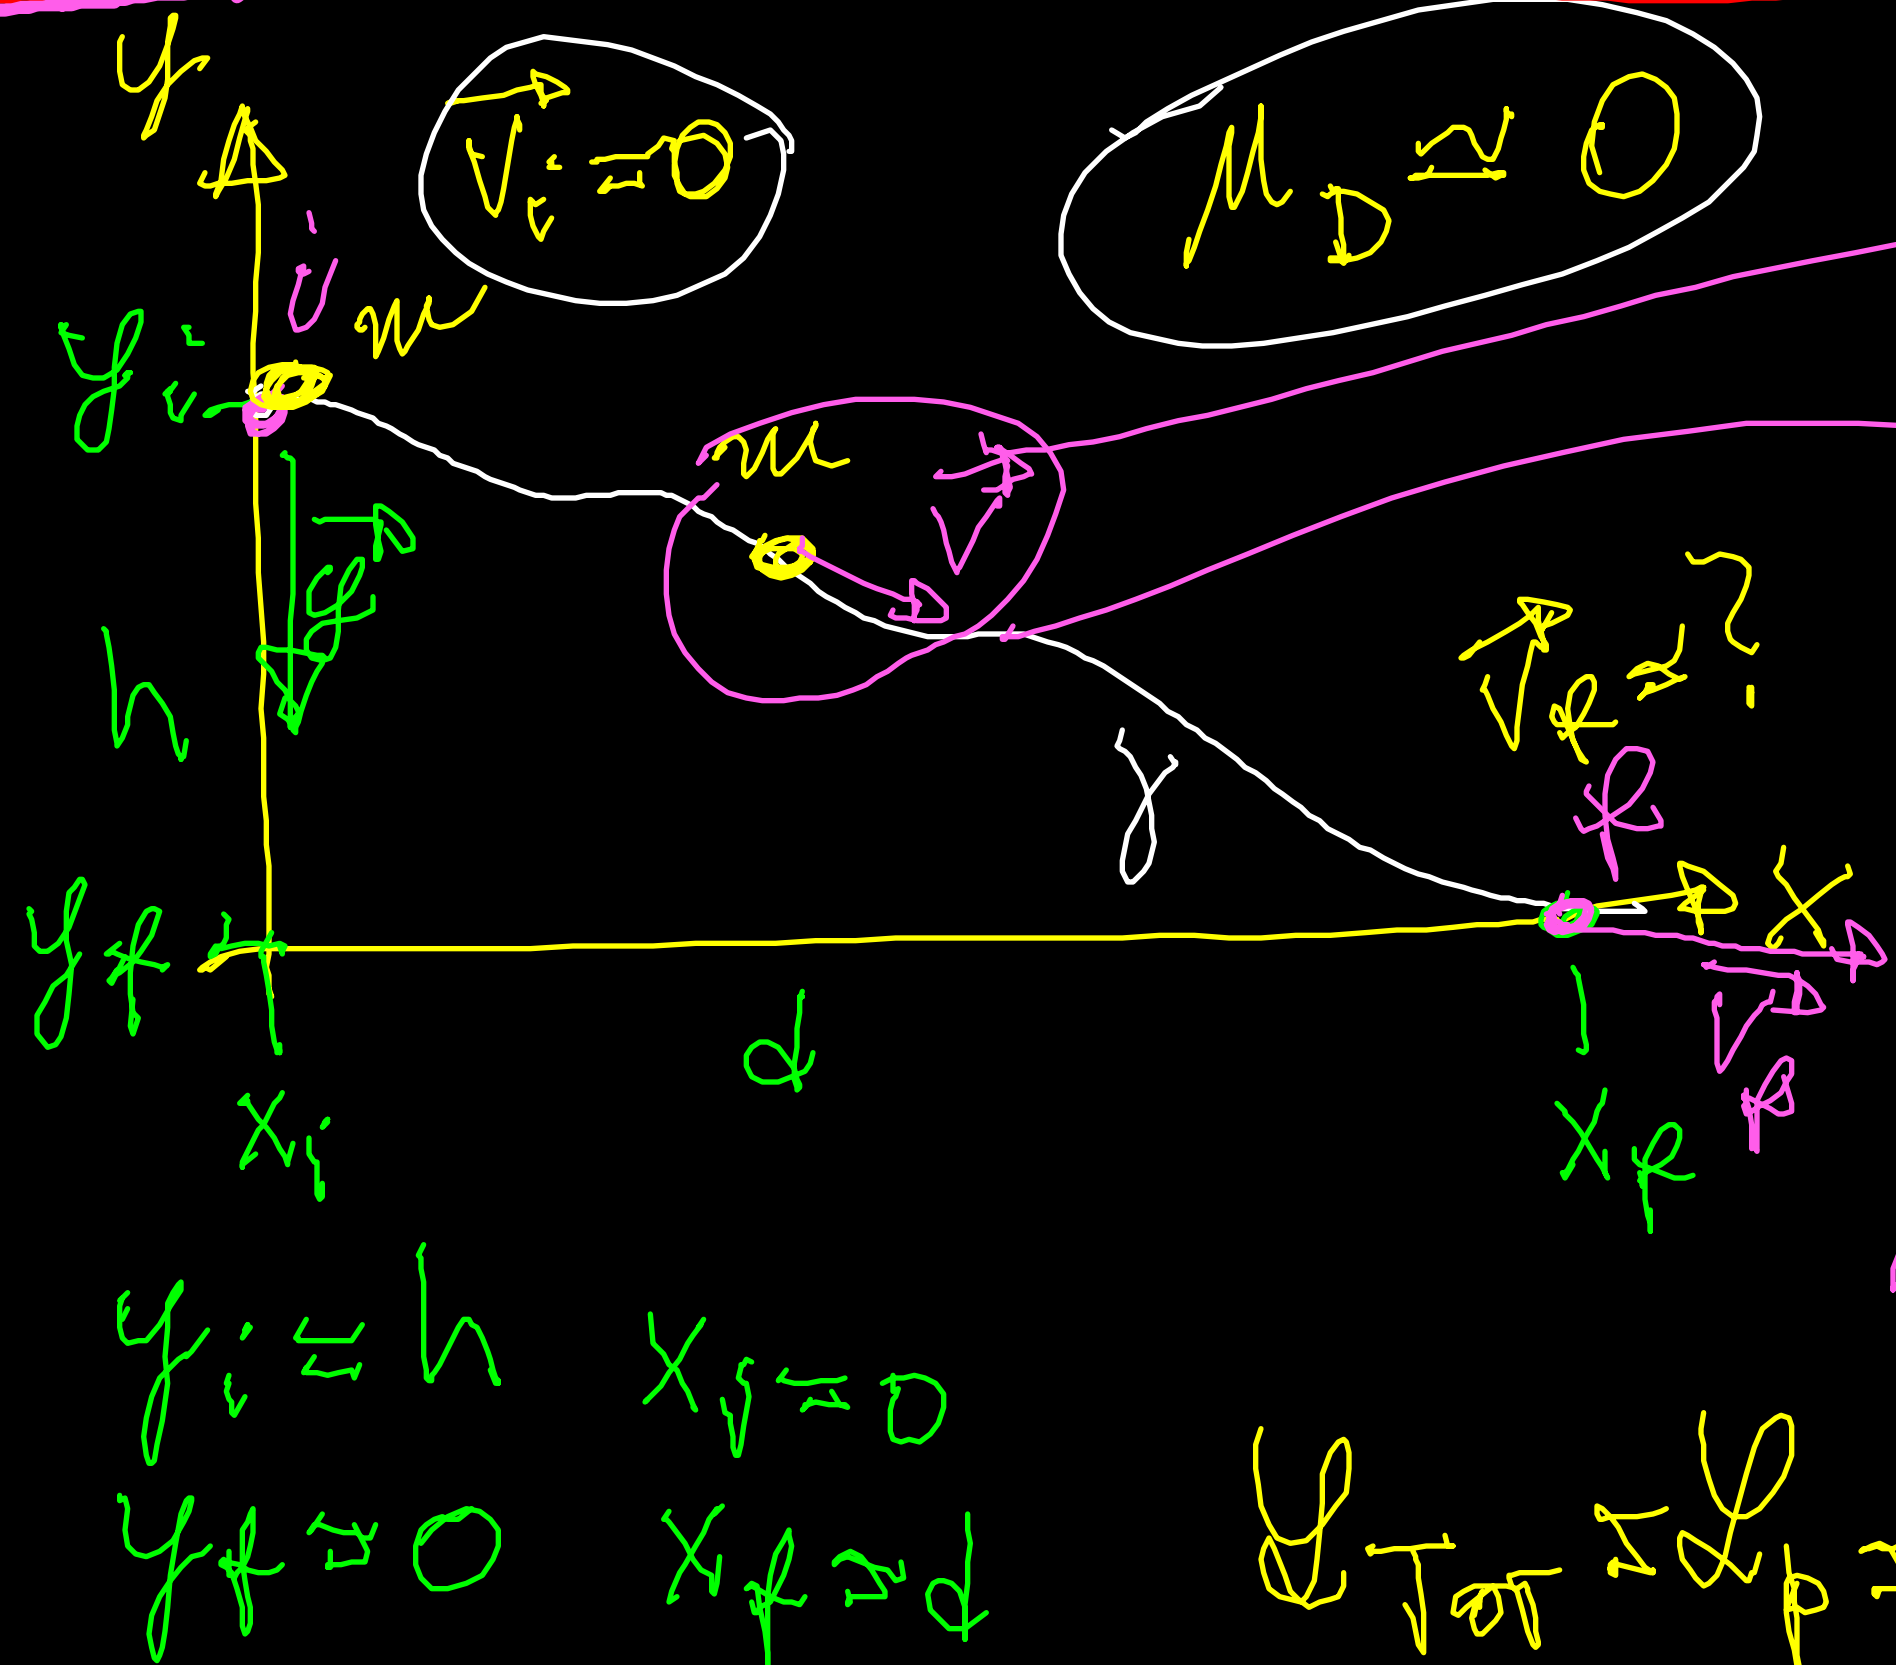 y
v⃗ᵢ = 0
μ_D = 0
i
m
yᵢ
m
v⃗
g⃗
h
v⃗_f = ?
γ
f
x
y_f
d
v⃗_f
xᵢ
x_f
yᵢ = h xᵢ = 0
y_f = 0 x_f = d